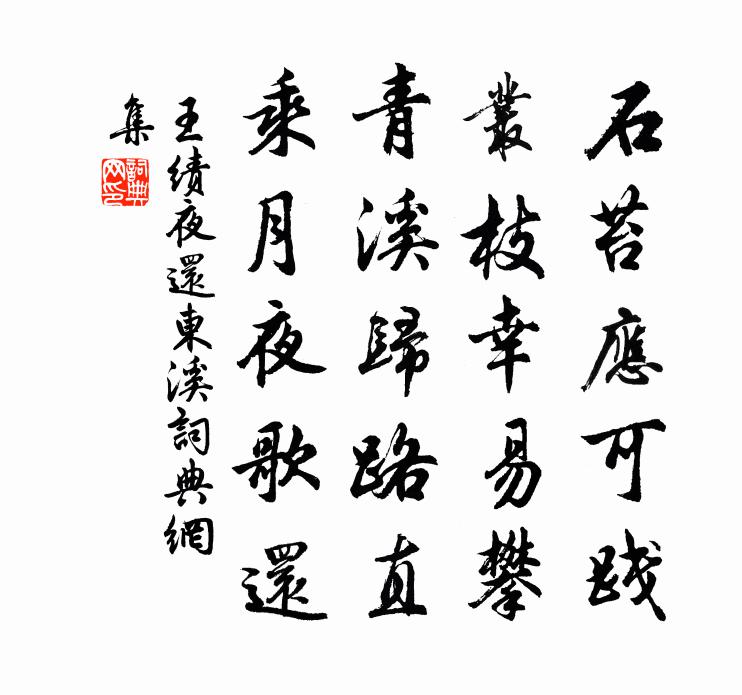 石苔應可踐
叢枝幸易攀
青溪歸路直
乘月夜歌還
王績夜還東溪詞典網
集
詞典網印